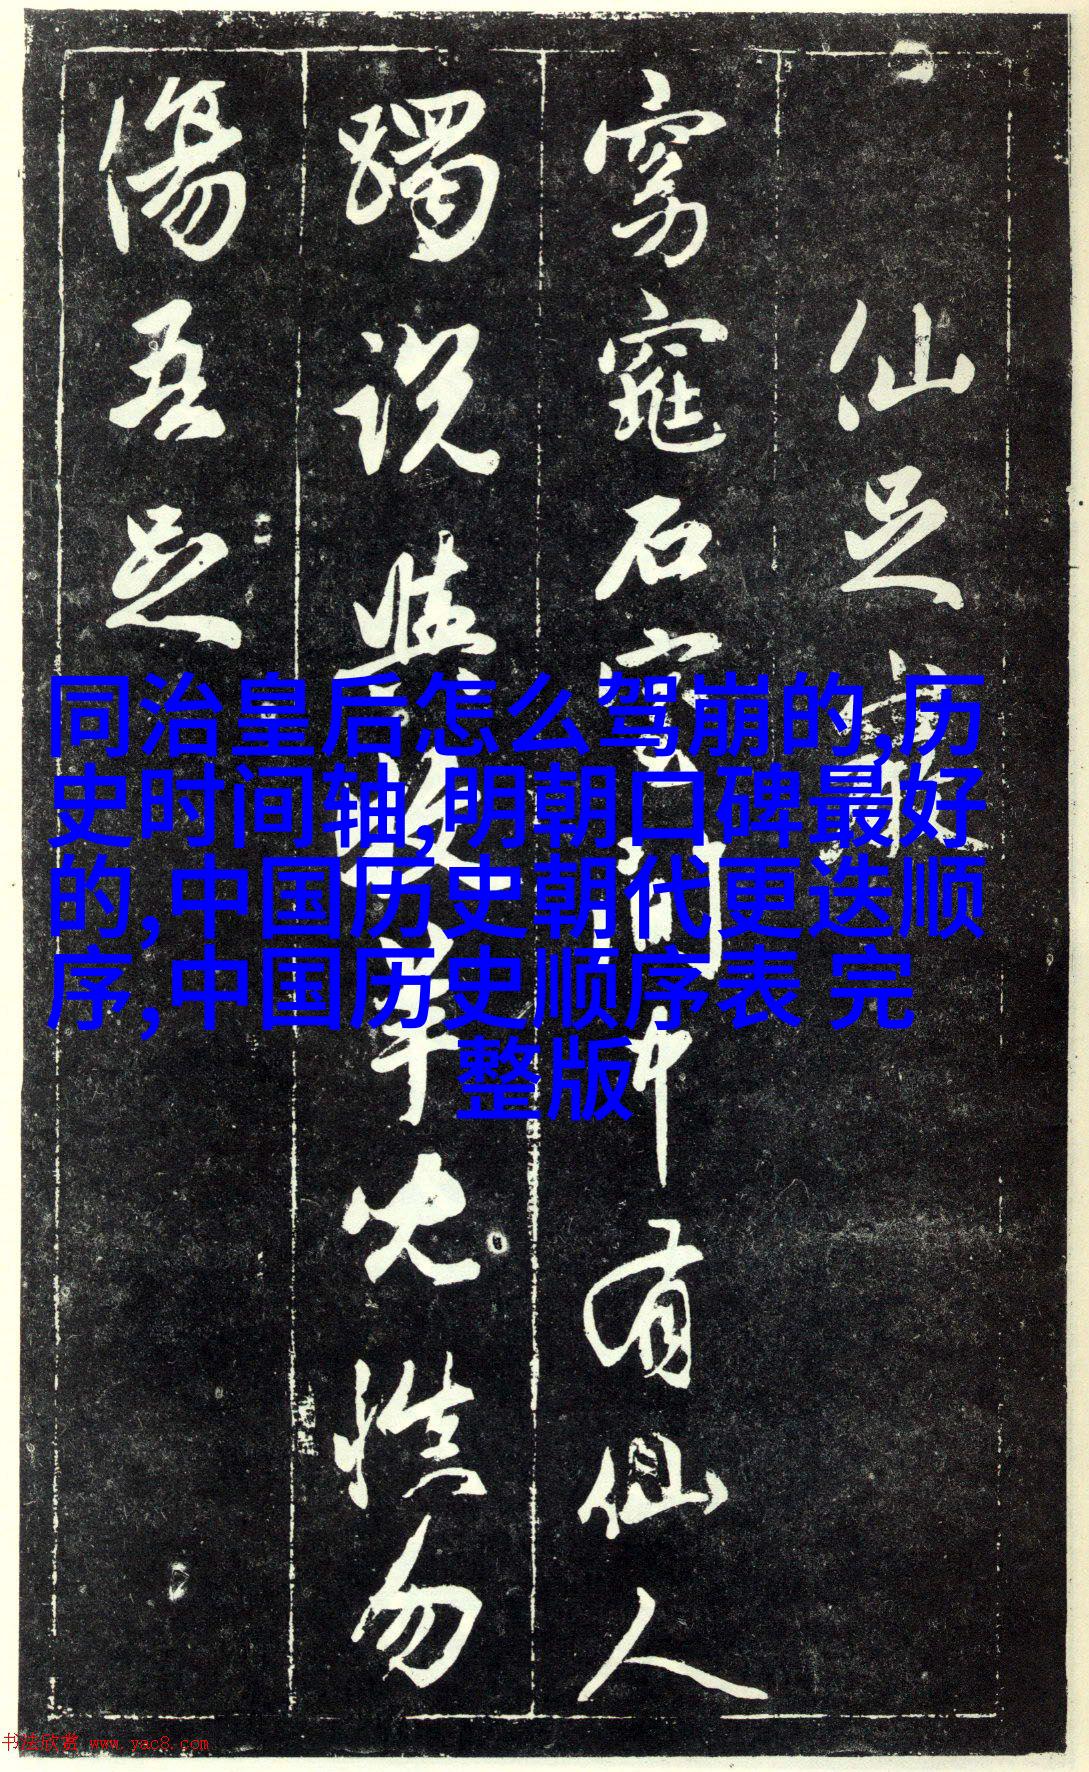 仙足
窈窕石室間中有仙人
躅説與牧羊兒慎勿
傷吾足
同治皇后怎么驾崩的,历
史时间轴,明朝口碑最好
的,中国历史朝代更迭顺
序,中国历史顺序表 完
整版
书法欣赏 www.yac8.com